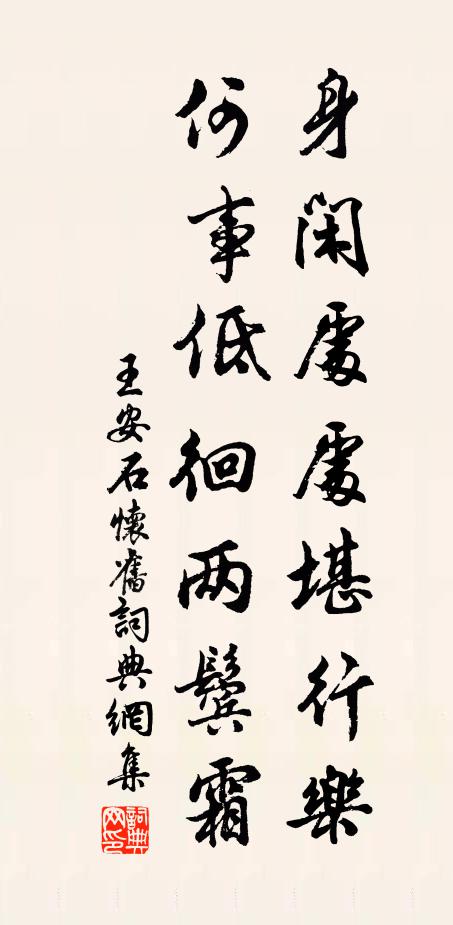 身閑處處堪行樂
何事低徊两鬢霜
王安石懷舊詞典網集
詞典網印